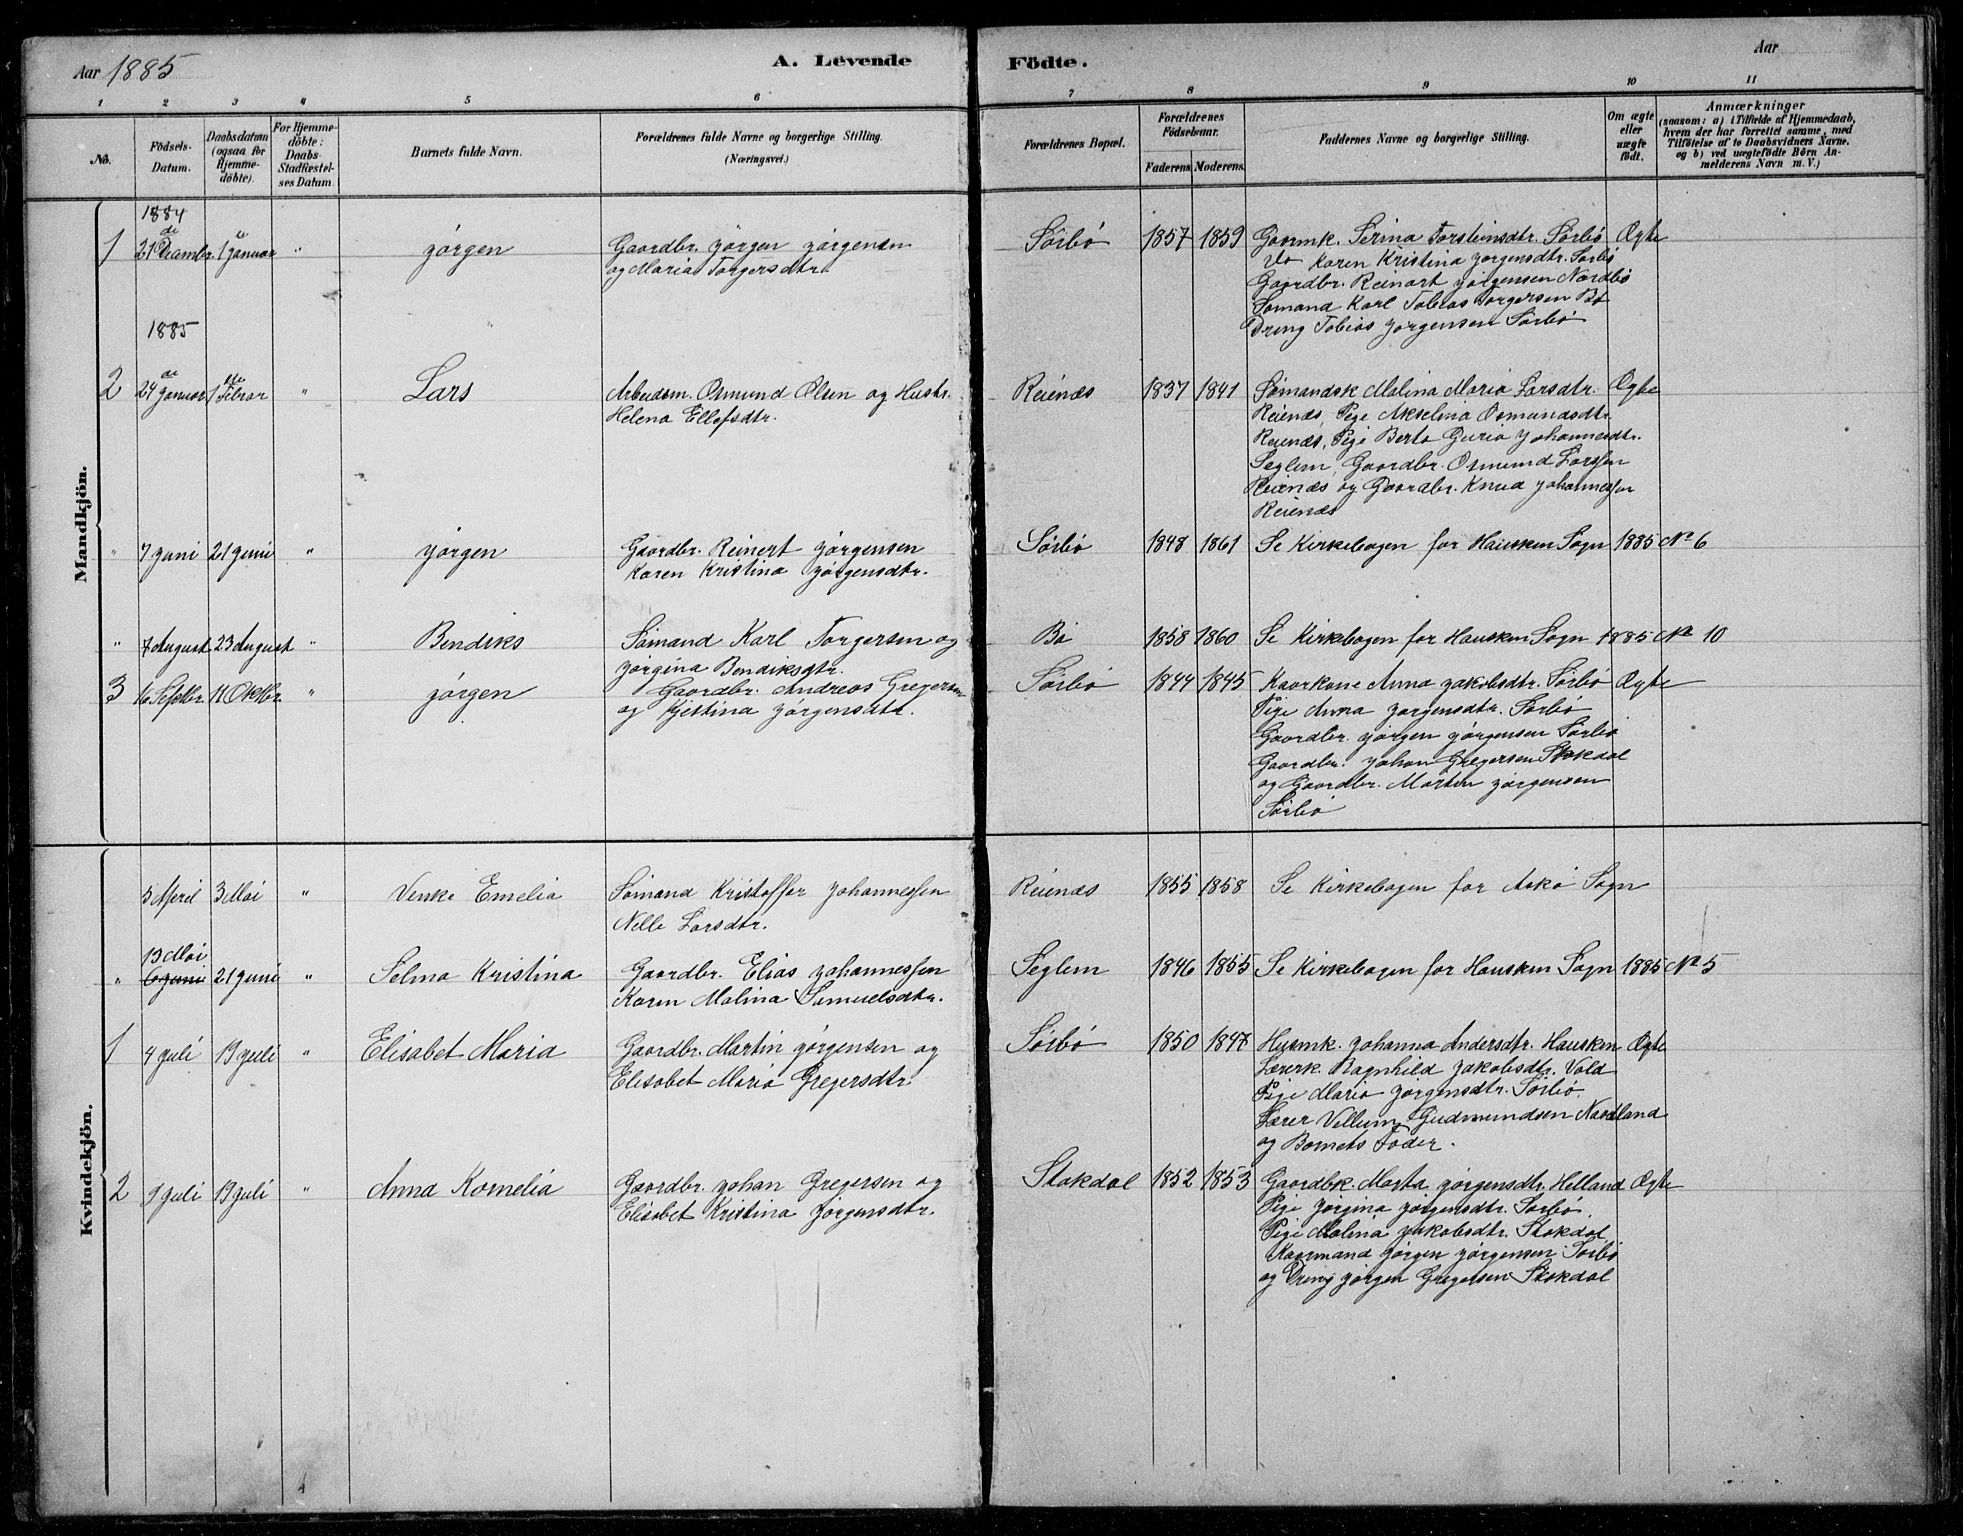 Aar 1885
A. Levende
Födte.
Aar
1 2 3 4 5 6 7 8 9 10 11
No.
Födsels-
Datum.
Daabsdatum
(ogsaa for
Hjemme-
döbte).
For Hjemme-
döbte:
Daabs-
Stadfæstel-
ses Datum.
Barnets fulde Navn.
Forældrenes fulde Navne og borgerlige Stilling.
(Næringsvei.)
Forældrenes Bopæl.
Forældrenes
Födselsaar.
Faderens. Moderens.
Faddernes Navne og borgerlige Stilling.
Om ægte
eller
uægte
födt.
Anmærkninger
(saasom: a) i Tilfælde af Hjemmedaab,
hvem der har forrettet samme, med
Tilföielse af to Daabsvidners Navne.
og b) ved uægtefödte Börn An-
melderens Navn m. V.)
Mandkjön.
1884
1 21de December 1de Januar " Jörgen
Gaardbr. Jörgen Jörgensen
og Maria Torgersdtr.
Sörbö 1857 1859
Gaarmk. Serina Torsteinsdtr. Sörbö Ægte
do Karen Kristina Jörgensdtr. Sörbö
Gaardbr. Reinart Jörgensen Nordbö
Sömand Karl Tobias Torgersen Bö
Dreng Tobias Jörgensen Sörbö
1885
2 24de Januar 1ste Febrar " Lars
Arbeidsm. Osmund Olsen og Hustr.
Helena Ellefsdtr.
Reienæs 1837 1841
Sömandsk Malina Maria Larsdtr. Ægte
Reienæs, Pige Akselina Osmundsdtr.
Reienæs, Pige Berta Guria Johannesdtr.
Seglem, Gaardbr. Osmund Larssen
Reienæs og Gaardbr. Knud Johannessen
Reienæs
" 7 Juni 21 Juni " Jörgen
Gaardbr. Reinert Jörgensen
Karen Kristina Jörgensdtr.
Sörbö 1848 1861 Se Kirkebogen for Hausken Sogn 1885 No 6
" 7 August 23 August " Bendiks
Sömand Karl Torgersen og
Jörgina Bendiksdtr.
Bö 1858 1860 Se Kirkebogen for Hausken Sogn 1885 No 10
3 16 Septbr. 11 Oktbr. " Jörgen
Gaardbr. Andreas Gregersen
og Kjestina Jörgensdtr.
Sörbö 1844 1845 Kaarkone Anna Jakobsdtr. Sörbö Ægte
Pige Anna Jörgensdtr. Sörbö
Gaardbr. Jörgen Jörgensen Sörbö
Gaardbr. Johan Gregersen Stokdal
og Gaardbr. Morten Jörgensen
Sörbö
Kvindekjön.
5 April 3 Mai " Venke Emelia
Sömand Kristoffer Johannessen
Nelle Larsdtr.
Reienæs 1855 1858 Se Kirkebogen for Askö Sogn
13 Mai
" 6 Juni 21 Juni " Selma Kristina
Gaardbr. Elias Johannessen
Karen Malina Samuelsdtr.
Seglem 1846 1855 Se Kirkebogen for Hausken Sogn 1885 No 5
1 4 Juli 19 Juli " Elisabet Maria
Gaardbr. Martin Jörgensen og
Elisabet Maria Gregersdtr.
Sörbö 1850 1847 Husmk. Johanna Andersdtr. Hausken Ægte
Lærerk. Ragnhild Jakobsdtr. Vold
Pige Maria Jörgensdtr. Sörbö.
Lærer Vellum Gudmundsen Nordland
og Barnets Fader.
2 9 Juli 19 Juli " Anna Kornelia
Gaardbr. Johan Gregersen og
Elisabet Kristina Jörgensdtr.
Stokdal 1852 1853 Gaardbk. Marta Jörgensdtr. Helland Ægte
Pige Jörgina Jörgensdtr. Sörbö.
Pige Malina Jakobsdtr. Stokdal
Kaarmand Jörgen Jörgensen Sörbö
og Dreng Jörgen Gregersen Stokdal